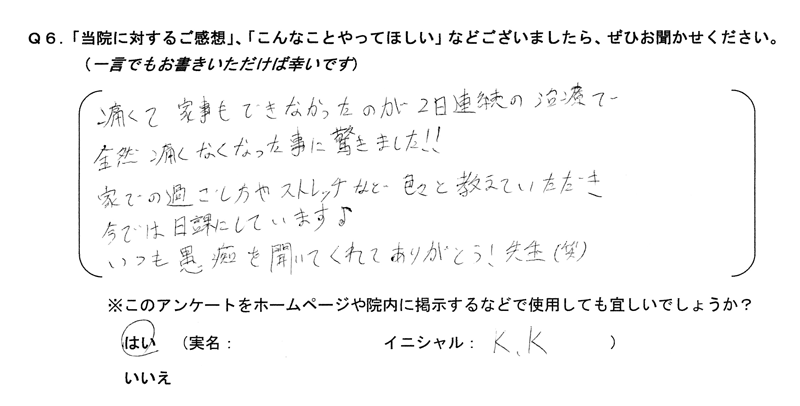 Ｑ６．「当院に対するご感想」、「こんなことやってほしい」などございましたら、ぜひお聞かせください。
（一言でもお書きいただけば幸いです）
痛くて 家事もできなかったのが 2日連続の 治療で
全然 痛くなくなった事に 驚きました!!
家での過ごし方や ストレッチなど 色々と 教えていただき
今では 日課にしています♪
いつも 愚痴を 聞いてくれて ありがとう! 先生（笑）
※このアンケートをホームページや院内に掲示するなどで使用しても宜しいでしょうか？
はい （実名： イニシャル： K、K ）
いいえ